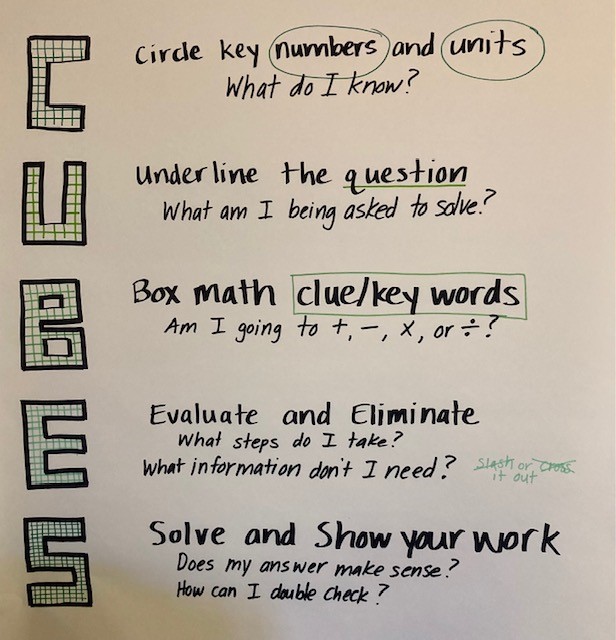 C
Circle key numbers and units
What do I know?
U
Underline the question
What am I being asked to solve?
B
Box math clue/key words
Am I going to +, −, ×, or ÷?
E
Evaluate and Eliminate
What steps do I take?
What information don't I need? slash or cross
it out
S
Solve and Show your work
Does my answer make sense?
How can I double check?